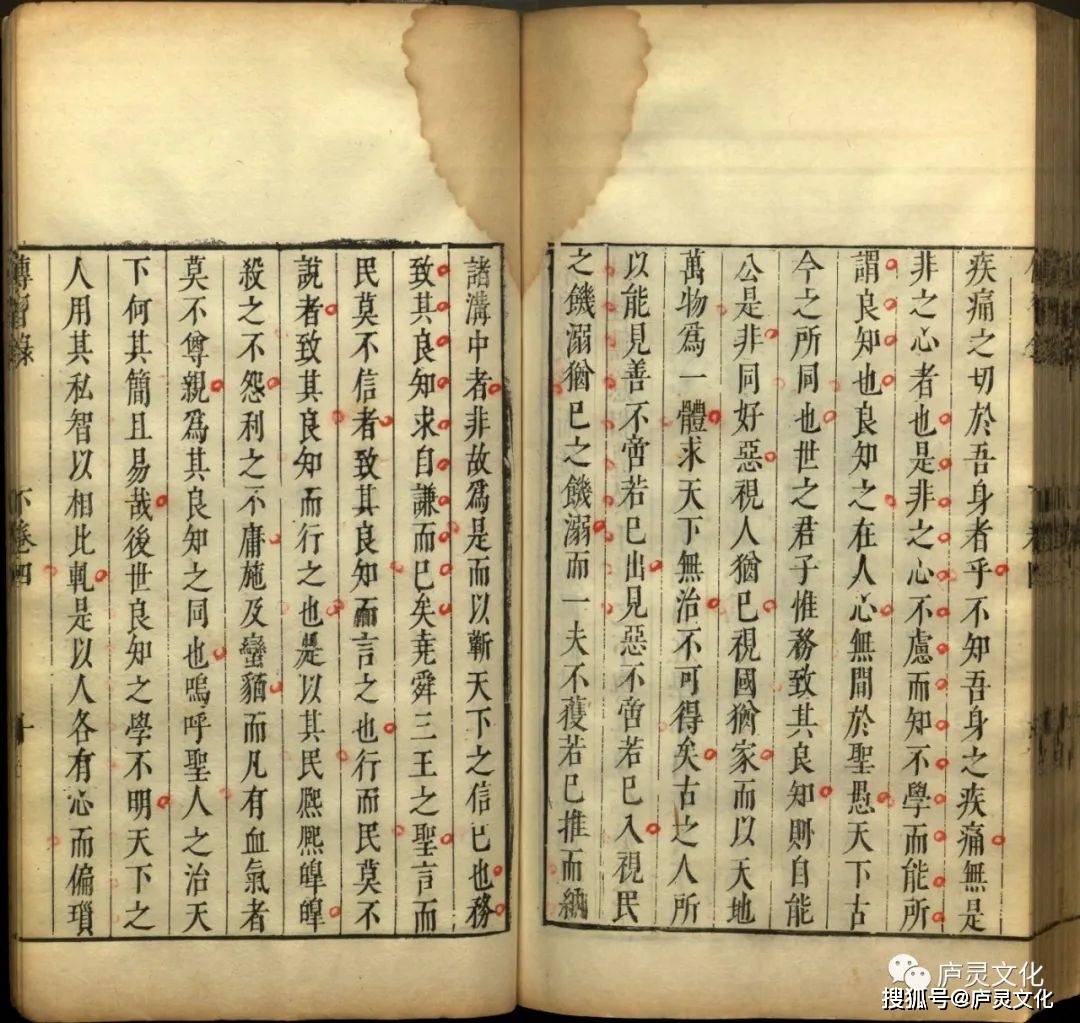 疾痛之切於吾身者乎不知吾身之疾痛無是
非之心者也是非之心不慮而知不學而能所
謂良知也良知之在人心無間於聖愚天下古
今之所同也世之君子惟務致其良知則自能
公是非同好惡視人猶己視國猶家而以天地
萬物爲一體求天下無治不可得矣古之人所
以能見善不啻若己出見惡不啻若己入視民
之饑溺猶己之饑溺而一夫不獲若己推而納
諸溝中者非故爲是而以蘄天下之信己也務
致其良知求自謙而已矣堯舜三王之聖言而
民莫不信者致其良知而言之也行而民莫不
說者致其良知而行之也是以其民熈熈皡皡
殺之不怨利之不庸施及蠻貊而凡有血氣者
莫不尊親爲其良知之同也嗚呼聖人之治天
下何其簡且易哉後世良知之學不明天下之
人用其私智以相比軋是以人各有心而偏瑣
傳習錄 下卷四 十
庐灵文化
搜狐号@庐灵文化